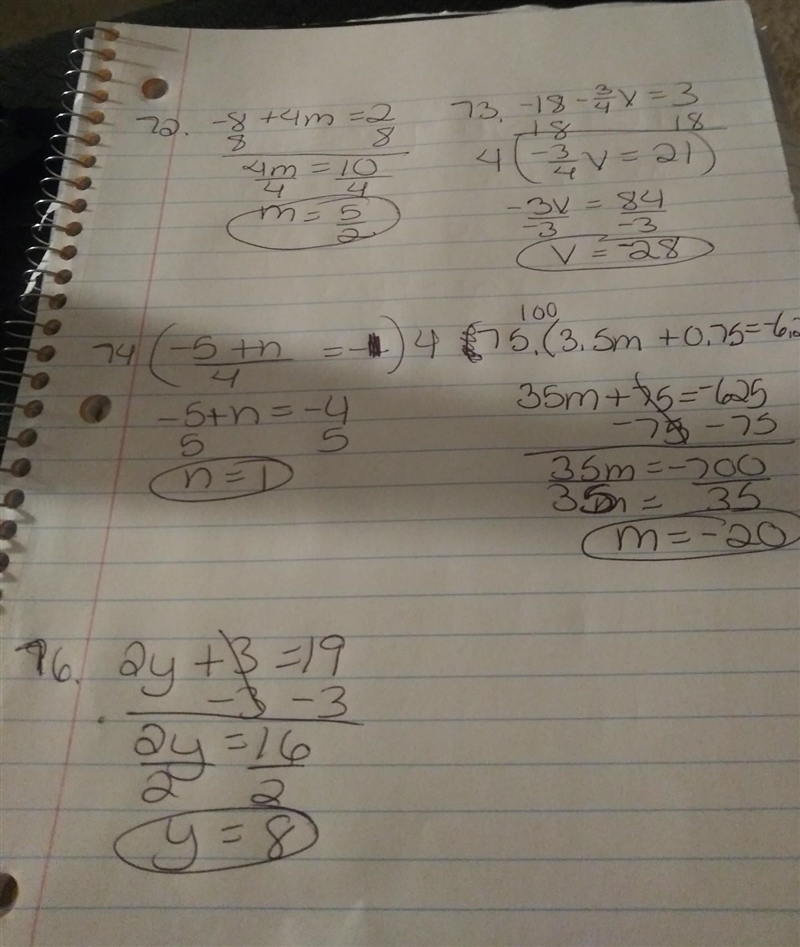 72. -8 + 4m = 2
8 8
4m = 10
4 4
m = 5/2
73. -18 - 3/4 v = 3
18 18
4 ( -3/4 v = 21 )
-3v = 84
-3 -3
v = -28
74 ( -5 + n / 4 = -1 ) 4
-5 + n = -4
5 5
n = 1
75. 100 ( 3.5m + 0.75 = -6.2
35m + 75 = -625
-75 -75
35m = -700
35m = 35
m = -20
76. 2y + 3 = 19
-3 -3
2y = 16
2 2
y = 8